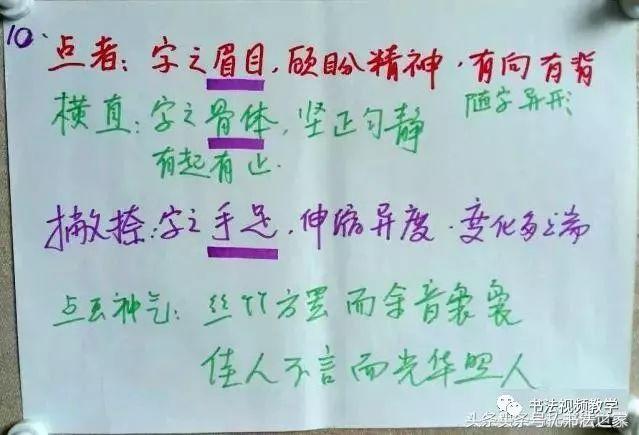 10.
点者：字之眉目，顾盼精神．有向有背
随字异形
横直：字之骨体，坚正匀静
有起有止．
撇捺：字之手足．伸缩异度．变化多端
点画神气：丝竹方罢而余音袅袅
佳人不言而光华照人
书法视频教学